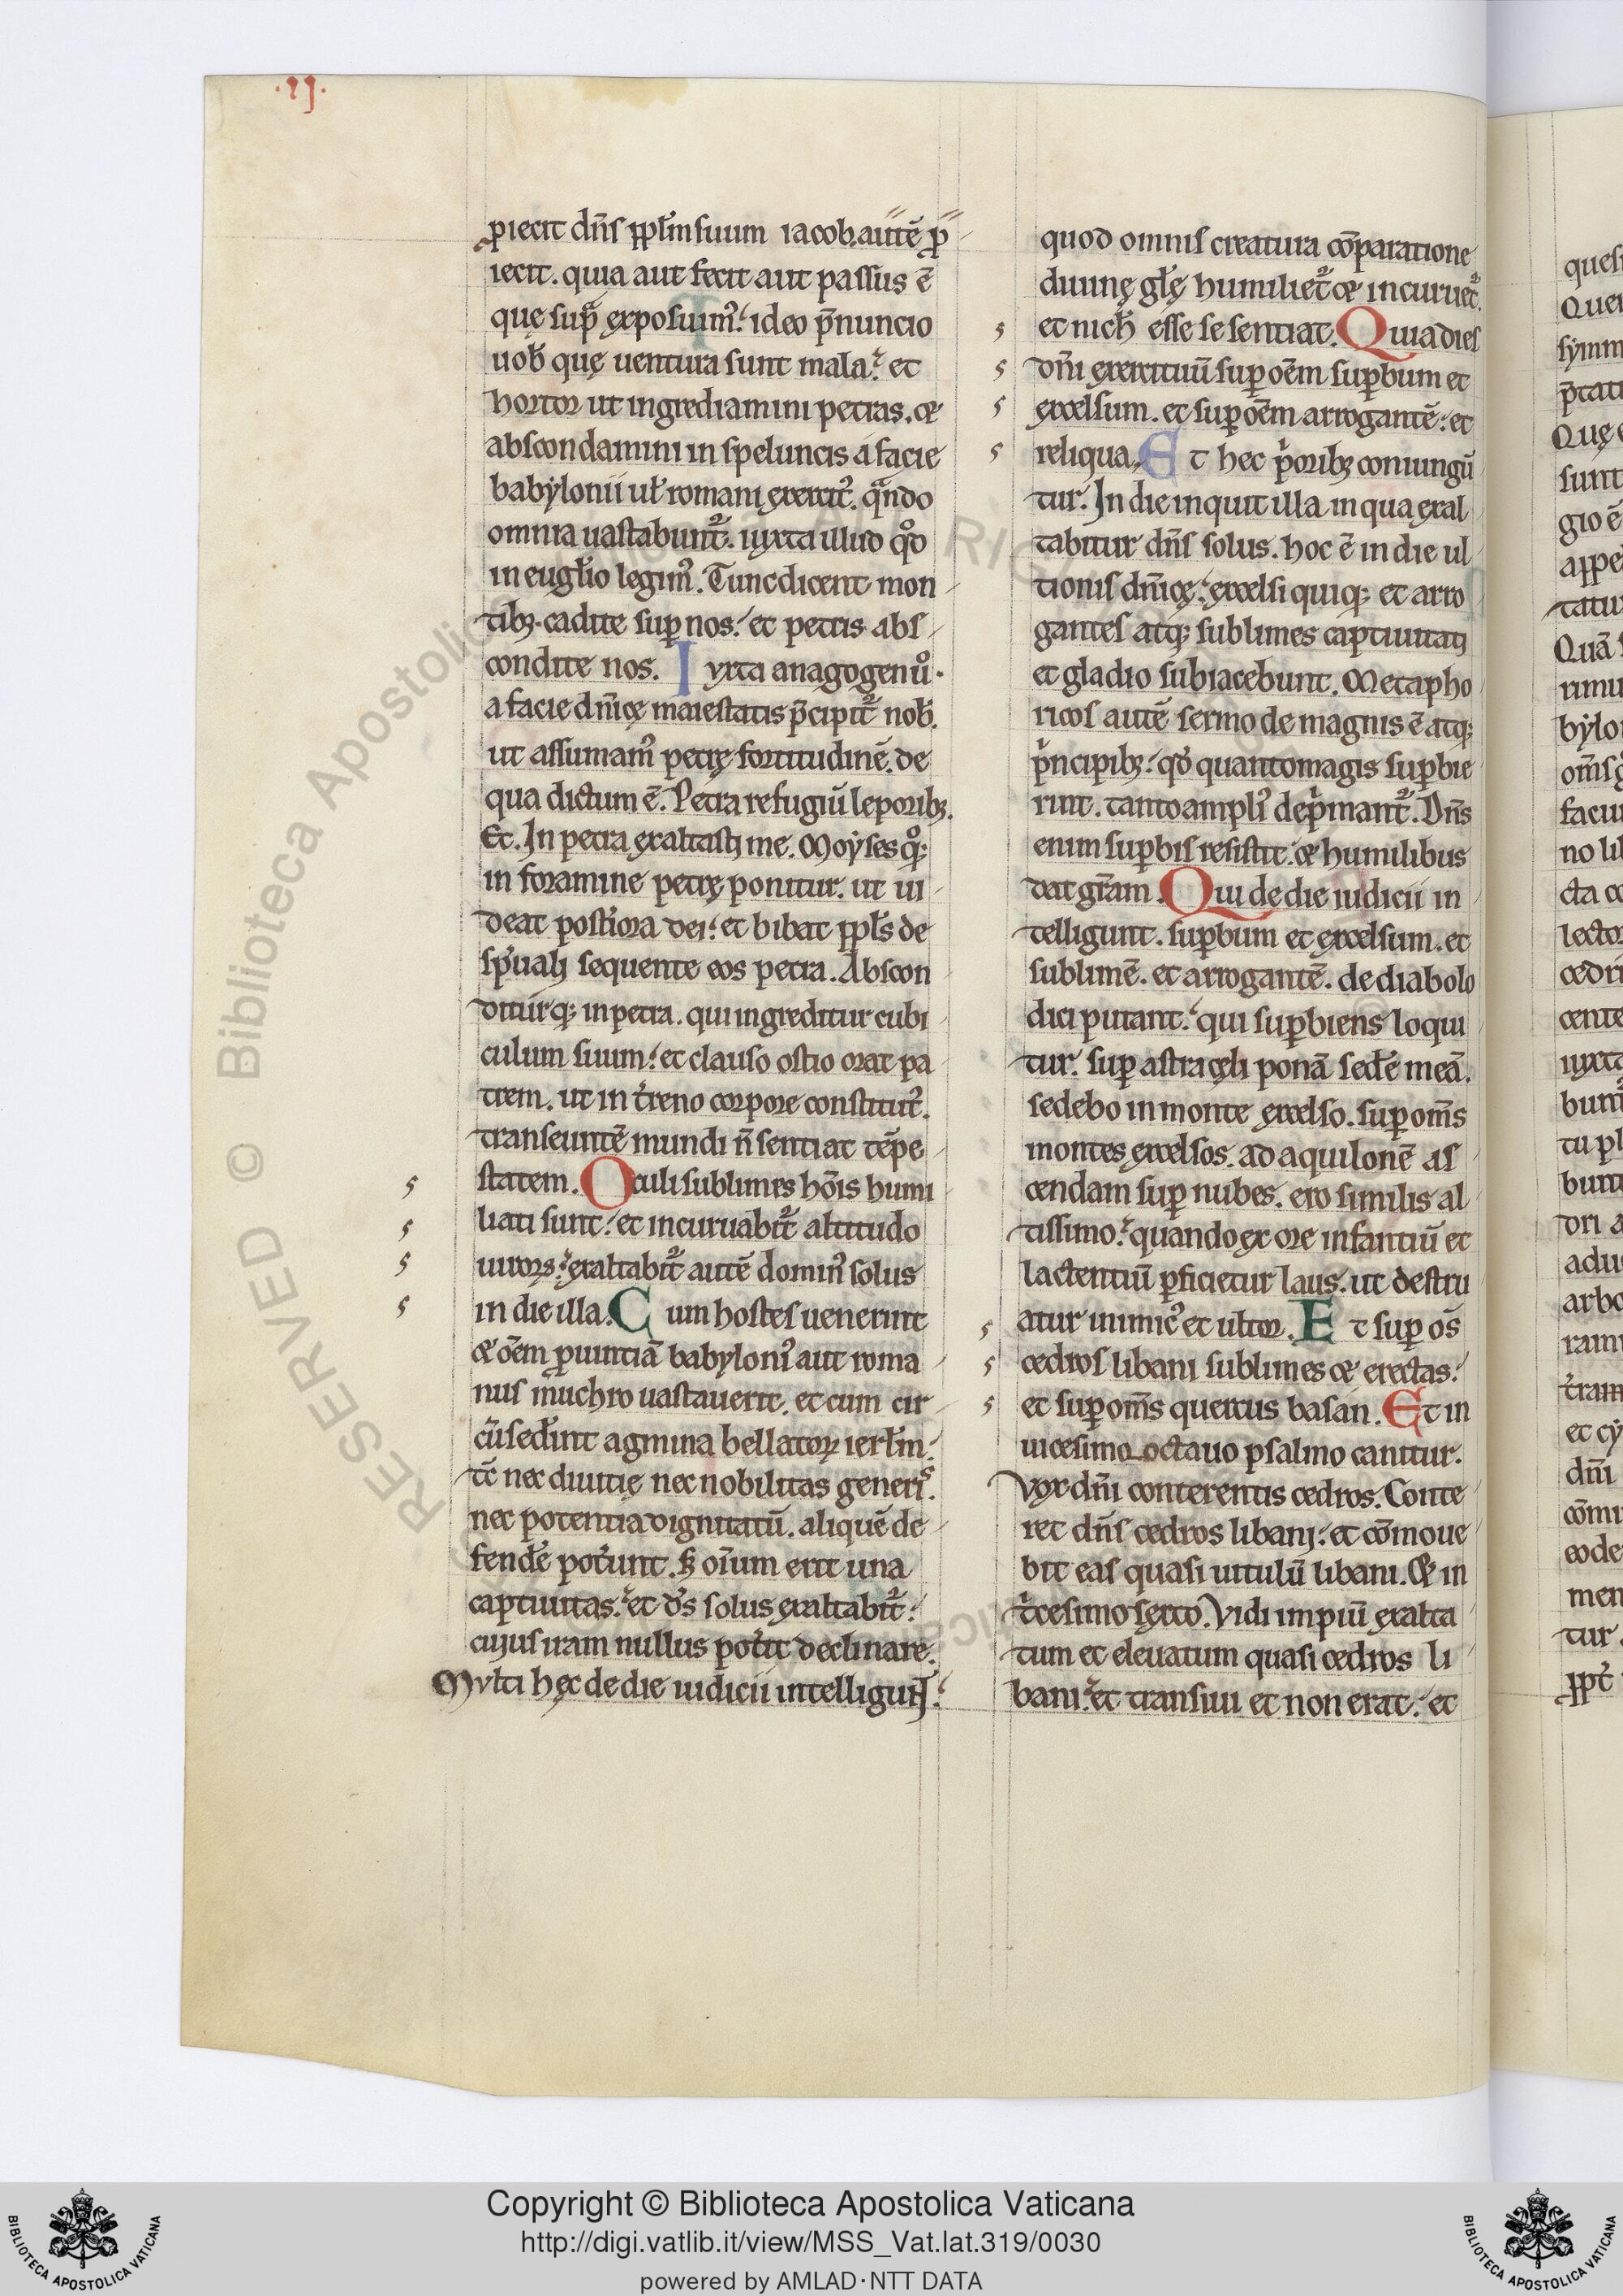 .IJ.
ꝓiecit dn̄s pplm̄ suum iacob. autē ꝓ
iecit. quia aut fecit aut passus ē
quę sup̄ exposuim᷒. ideo p̄nuncio
uob̄ quę uentura sunt mala. et
hortor ut ingrediamini petras. &
abscondamini in speluncis a facie
babylonii ul̄ romani exercit᷒. qn̄do
omnia uastabunt᷑. iuxta illud qd̄
in euglio legim᷒. Tunc dicent mon
tib; cadite sup nos. et petris abs
condite nos. Iuxta anagogen u͛o.
a facie dn̄icę maiestatis p̄cipit᷑ nob̄.
ut assumam᷒ petrę fortitudinē. de
qua dictum ē. Petra refugiū leporib;.
Et. In petra exaltasti me. Moyses qͦq;
in foramine petrę ponitur. ut ui
deat posteriora dei. et bibat ppl̄s de
sp̄uali sequente eos petra. Abscon
diturq; in petra. qui ingreditur cubi
culum suum. et clauso ostio orat pa
trem. ut in treno corpore constitut᷒.
transeuntē mundi n̄ sentiat tēpe
statem. Oculi sublimes hōis humi
liati sunt. et incuruabit᷑ altitudo
uiroꝝ. exaltabit᷑ autē domin᷒ solus
in die illa. Cum hostes uenerint
& oēm ꝓuintiā babyloni᷒ aut roma
nus muchro uastauerit. et cum cir
cūsederint agmina bellatoꝝ ierl̄m.
tc̄ nec diuitię nec nobilitas generis.
nec potentia dignitatū. aliquē de
fendere poterunt. sꝫ oīum erit una
captiuitas. et d͛s solus exaltabit᷑.
cuius iram nullus poterit declinare.
Multi hęc de die iudicii intelligunt.
quod omnis creatura cōparatione
diuinę glę humiliet᷑ & incuruet᷑.
et nich̄ esse se sentiat. Quia dies
dn̄i exercituū suꝑ oēm suꝑbum et
excelsum. et suꝑ oēm arrogantē. et
reliqua. Et hec p̍orib; coniungū
tur. In die inquit illa in qua exal
tabitur dn̄s solus. hoc ē in die ul
tionis dn̄icę. excelsi quiq; et arro
gantes atq; sublimes captiuitati
et gladio subiacebunt. Metapho
ricos autē sermo de magnis ē atq;
p̍ncipib;. qd̄ quanto magis suꝑbie
rint. tanto ampli᷒ dep̍mant᷑. Dn̄s
enim suꝑbis resistit. & humilibus
dat gr̄am. Qui de die iudicii in
telligunt. suꝑbum et excelsum. et
sublimē. et arrogantē. de diabolo
dici putant. qui suꝑbiens loqui
tur. suꝑ astra cęli ponā sedē meā.
sedebo in monte excelso. suꝑ om̄s
montes excelsos. ad aquilonē as
cendam suꝑ nubes. ero similis al
tissimo. quando ex ore infantiū et
lactentiū ꝑficietur laus. ut destru
atur inimic᷒ et ultor. Et suꝑ os̄
cedros libani sublimes & erectas.
et suꝑ om̄s quercus basan. Et in
uicesimo octauo psalmo canitur.
Vox dn̄i conterentis cedros. Conte
ret dn̄s cedros libani. et cōmoue
bit eas quasi uitulū libani. & in
tricesimo sexto. Vidi impiū exalta
tum et eleuatum quasi cedros li
bani. et transiui et non erat. et
RESERVED © Biblioteca Apostolica
Copyright © Biblioteca Apostolica Vaticana
http://digi.vatlib.it/view/MSS_Vat.lat.319/0030
powered by AMLAD·NTT DATA
BIBLIOTECA APOSTOLICA VATICANA
BIBLIOTECA APOSTOLICA VATICANA